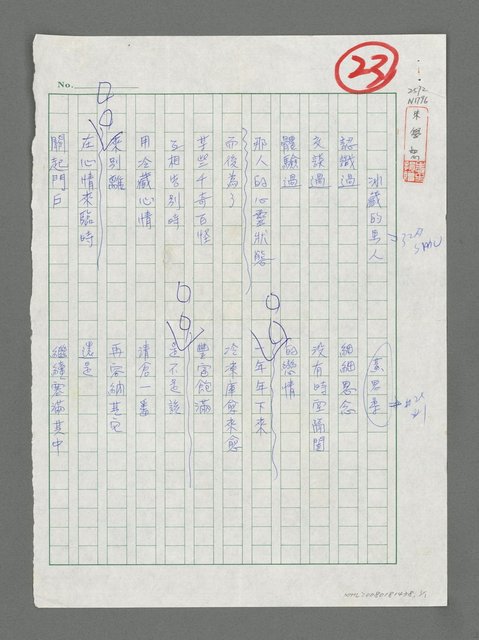 No.
23
2512
朱學恕
冰藏的男人
認識過
交談過
體驗過
那人的心靈狀態
而後為了
某些千奇百怪
互相告別時
用冷藏心情
來別離
在心情來臨時
關起門戶
細細思念
沒有時空隔閡
的戀情
一年年下來
冷凍庫愈來愈
豐富飽滿
是不是該
清倉一番
再容納其它
還是
繼續塞滿其中
NML20080181438